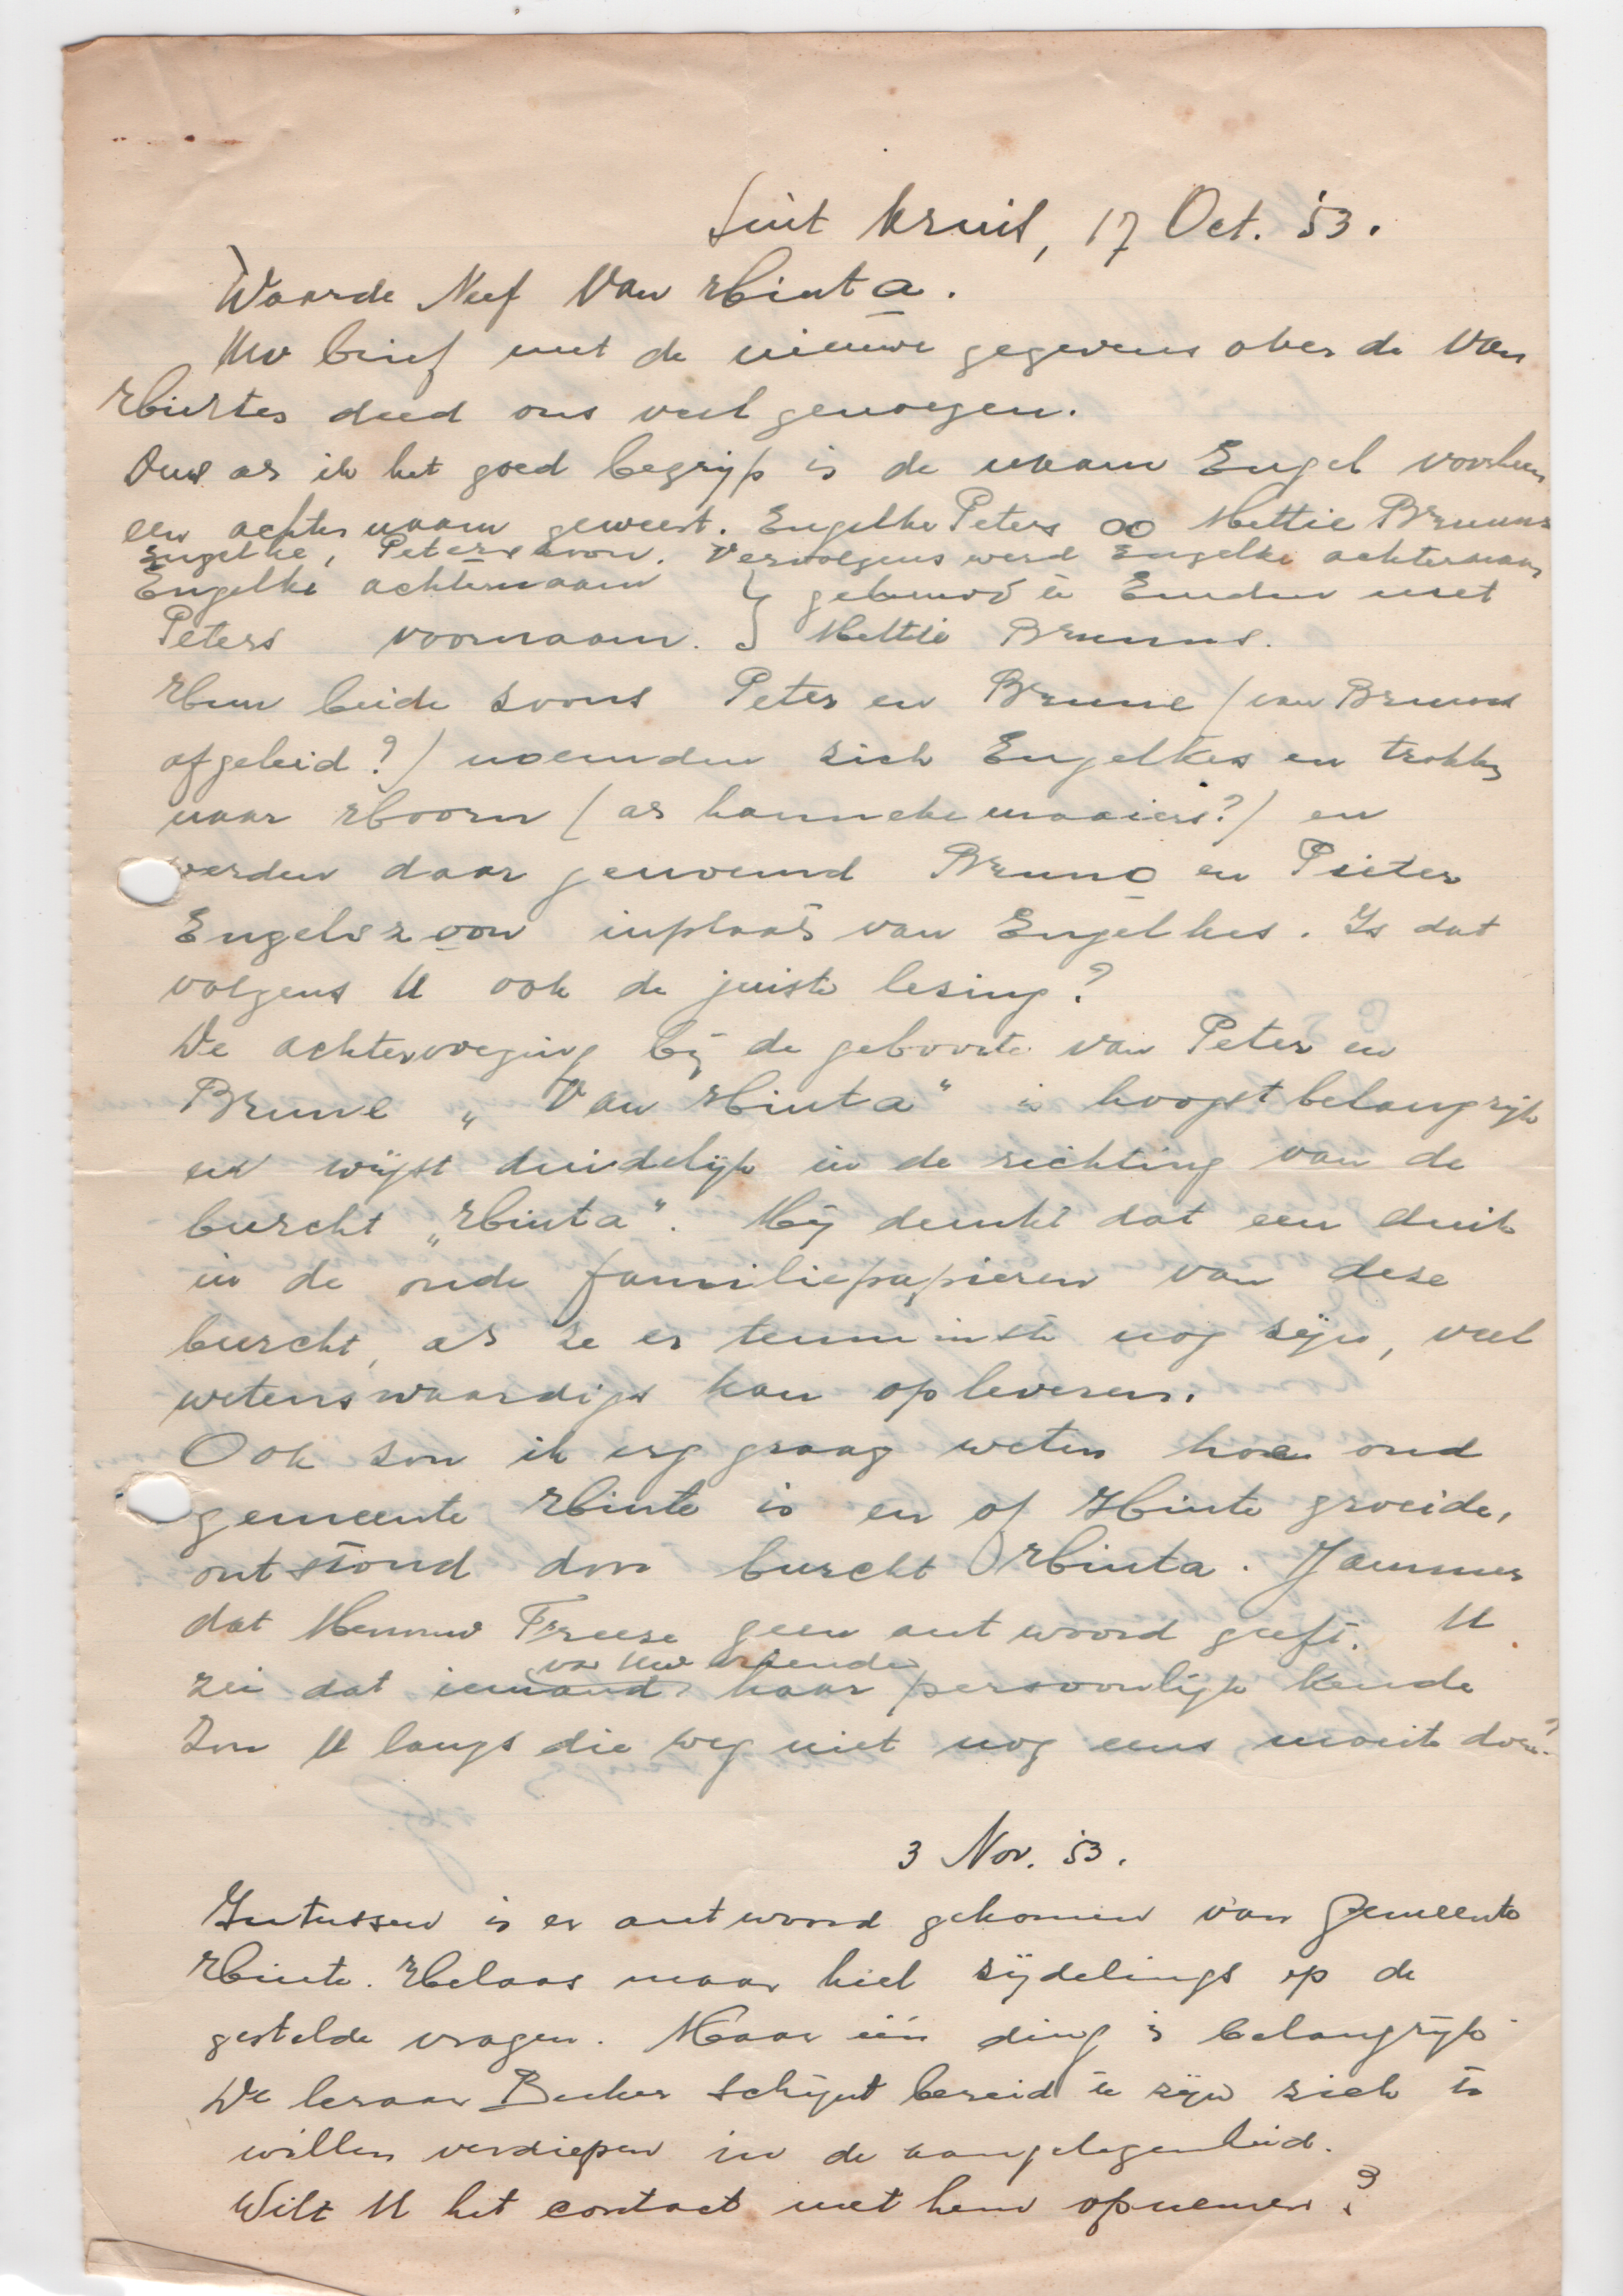 Sint Kruis, 17 Oct. '53.
Waarde Neef Van Hinta.
Uw brief met de nieuwe gegevens over de Van
Hinte's deed ons veel genoegen.
Dus as ik het goed begrijp is de naam Engel voorheen
een achternaam geweest. Engelke Peters ∞ Mettie Brunns
Engelke, Peterszoon. Vervolgens werd Engelke achternaam
Engelke achternaam } gehuwd te Emden met
Peters voornaam. } Mettie Brunns.
Hun beide zoons Peter en Brune (van Brunns
afgeleid?) noemden zich Engelkes en trokken
naar Hoorn (as hannekemaaiers?) en
werden daar genoemd Bruno en Pieter
Engelszoon inplaats van Engelkes. Is dat
volgens U ook de juiste lezing?
De achtervoeging bij de geboorte van Peter en
Brune „Van Hinta" is hoogst belangrijk
en wijst duidelijk in de richting van de
burcht „Hinta". Mij dunkt dat een duik
in de oude familiepapieren van deze
burcht, as ze er tenminste nog zijn, veel
wetenswaardigs kan opleveren.
Ook zou ik erg graag weten hoe oud
gemeente Hinte is en of Hinte groeide,
ontstond door burcht Hinta. Jammer
dat Mevrouw Freese geen antwoord geeft. U
van Uw vrienden
zei dat iemand haar persoonlijk kende
Zou U langs die weg niet nog eens moeite doen?
3 Nov. 53.
Intussen is er antwoord gekomen van gemeente
Hinte. Helaas maar heel zijdelings op de
gestelde vragen. Maar één ding is belangrijk
De leraar Becker schijnt bereid te zijn zich te
willen verdiepen in de aangelegenheid.
Wilt U het contact met hem opnemen?